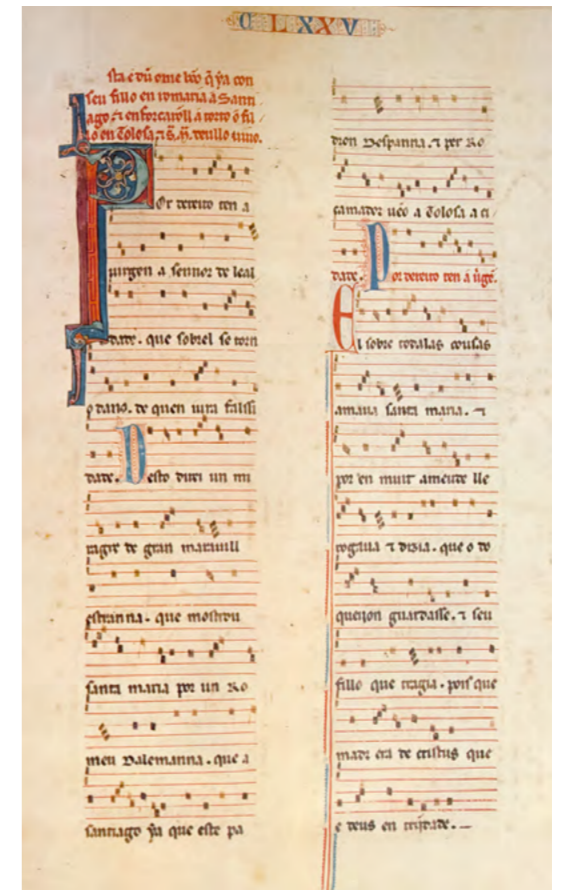 CLXXV
sta é dũ ome bõo q̃ ya con
seu fillo en romaria a Sanit
ago ⁊ enforcaroll a torto o fil
o en Tolosa ⁊ viuo.
Por dereito ten a
uirgen a sennor de leal
dade. que sobrel se torn
o dano. de quen uira falssi
dade. Desto direi un mi
ragre de gran marauill
estranna. que mostrou
santa maria por un Ro
meu Dalemanna. que a
santiago ya que este pa
dron Despanna. ⁊ per Ro
camador uẽo a Tolosa a ci
dade. Por dereito ten a uigẽ.
El sobre todalas cousas
amaua santa maria. ⁊
por en muit ameude lle
rogaua ⁊ dizia. que o do
queijon guardasse. ⁊ seu
fillo que tragia. pois que
madr era de cristus que
e deus en trijdade.